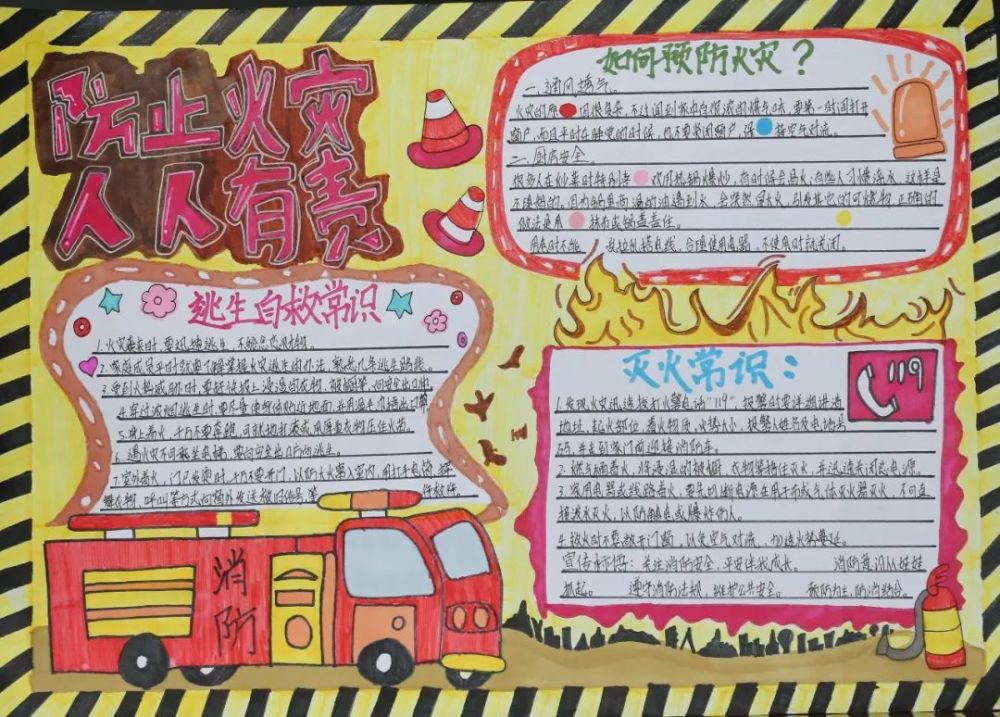 防止火灾
人人有责
如何预防火灾？
一、通风透气。
火灾的原 因很复杂,不过闻到家中有很浓的煤气味,要第一时间打开
窗户,而且平时在睡觉的时候,也不要紧闭窗户,保 持空气对流。
二、厨房安全。
很多人在炒菜时特别喜 欢用热锅爆炒,有时候会局火,有些人习惯浇水,这样是
不理想的。因为锅里面 温的油遇到火,会突然冒大火,引燃其它的可燃物,正确的
做法是用 抹布或锅盖盖住。
用电时不能 乱拉乱搭电线,合理使用电器,不使用时就关闭。
逃生自救常识
1.火灾袭来时,要迅速逃生,不能贪恋财物。
2.家庭成员平时就要了解掌握火灾逃生的办法,熟悉几条逃生路线。
3.受到火势威胁时,要赶快披上浸湿的衣物,被褥等,向安全出口冲
4.穿过浓烟逃生时,要尽量使身体贴近地面,并用湿毛巾捂住口鼻。
5.身上着火,千万不要奔跑,可就地打滚或用厚重衣物压住火苗。
6.遇火灾不可乘坐电梯,要向安全出口方向逃生。
7.室外着火,门已发烫时,千万不要开门,以防大火窜入室内,用
舞衣物,呼叫等方式向窗外发送救助信号,等
消防
灭火常识：
119
1.发现火灾迅速拨打火警电话"119"报警时要详细讲清
地址、起火部位、着火物质、火势大小、报警人姓名及电话号
码,并走到家门前迎接消防车。
2.燃气罐着火,将浸湿的被褥、衣物等捂住灭火,并迅速关闭总电源。
3.家用电器或线路着火,要先切断电源,在用干粉或气体灭火器灭火,不可直
接泼水灭火,以防触电或爆炸伤人。
4.救火时不要做开门窗,以免空气对流,加速火势蔓延。
宣传标语：关注消防安全,平安伴我成长。 消防意识从娃娃
抓起。 遵守消防法规,维护公共安全。 预防为主,防消结合。